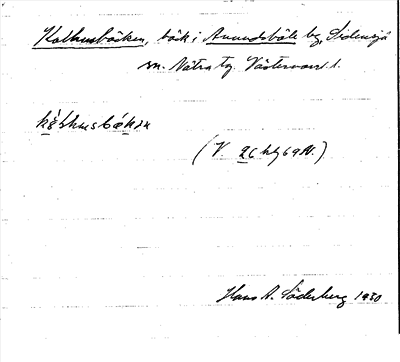 Kolhusbäcken, bäck i Anundsböle by, Sidensjö
sn. Nätra tg. Västernorrl. l.
(V 26 hbg 69 N.)
Hans A. Söderberg 1930